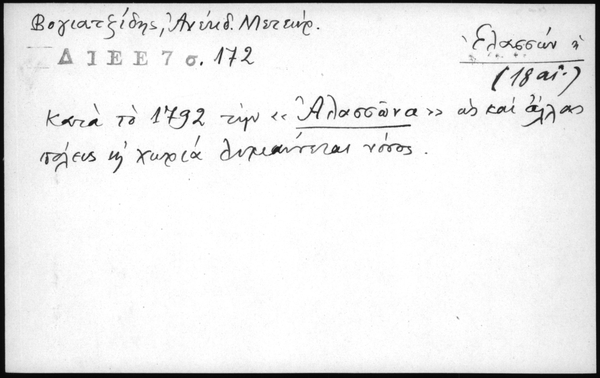 Βογιατζίδης, Ἀνέκδ. Μετεώρ.
Δ Ι Ε Ε 7 σ. 172
Ἐλασσών ἡ
(18 αἰ.)
κατὰ τὸ 1792 τὴν « Ἀλασσῶνα » ὡς καὶ ἄλλας
πόλεις κ χωριά λυμαίνεται νόσος.